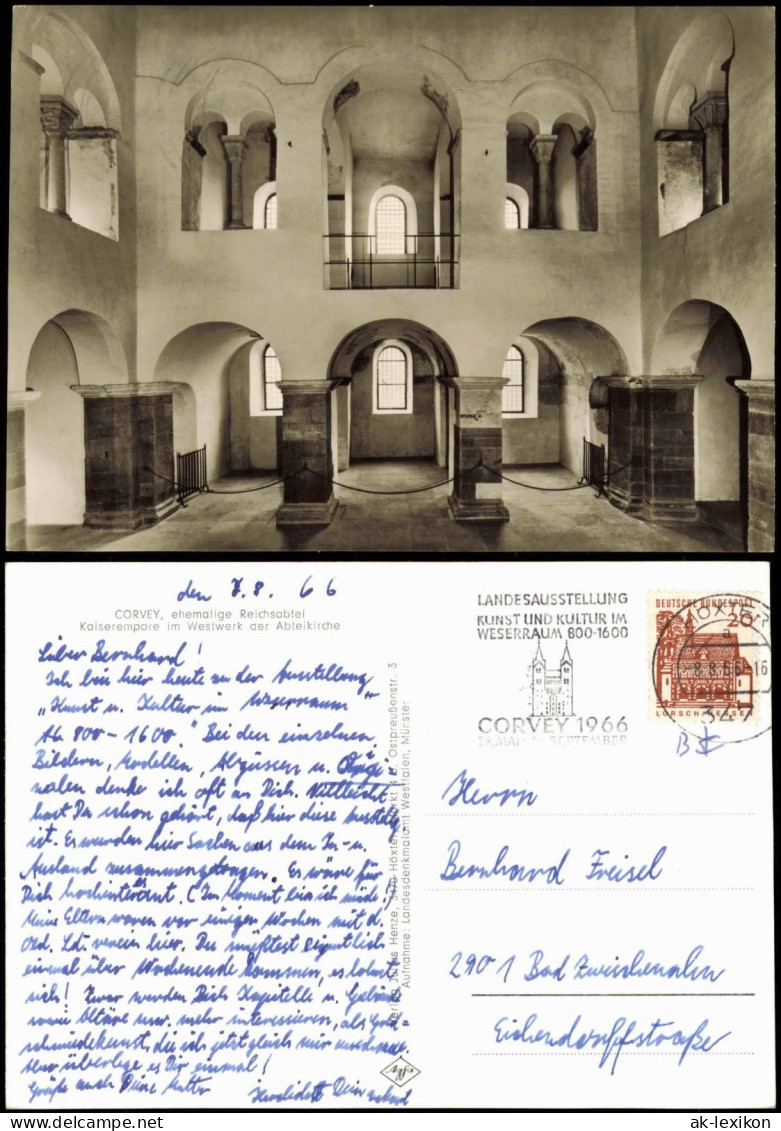 den 7.8.66
CORVEY, ehemalige Reichsabtei
Kaiserempore im Westwerk der Abteikirche
Lieber Bernhard!
Ich bin hier heute zu der Ausstellung
„Kunst u. Kultur im Weserraum
800-1600" Bei den einzelnen
Bildern, Modellen, Abgüssen u. Origi
nalen denke ich oft an Dich. Vielleicht
hast Du schon gehört, daß hier diese
ist. Es wurden hier Sachen aus dem In- u.
Ausland zusammengetragen. Es wäre für
Dich hochinteressant. (Im Moment bin ich müde.)
Meine Eltern waren vor einigen Wochen mit d.
verein hier. Du müßtest eigentlich
einmal über Wochenende kommen, es lohnt
sich! Zwar werden Dich Kapitelle u.
sowie Altäre usw. mehr interessieren, als Gold=
schmiedekunst, die ich jetzt gleich mir anschaue.
Aber überlege es Dir einmal!
Grüße auch Deine Mutter
Herzlichst Dein
Henze, 3470 Höxter, Markt 4 u. Ostpreußenstr. 3
Aufnahme: Landesdenkmalamt Westfalen, Münster
LANDESAUSSTELLUNG
KUNST UND KULTUR IM
WESERRAUM 800-1600
CORVEY 1966
SEPTEMBER
DEUTSCHE BUNDESPOST
20
LORSCH/HESSEN
HÖXTER
a
8.8.66-16
347
Herrn
Bernhard Freisel
2901 Bad Zwischenahn
Eichendorffstraße
ak-lexikon.com